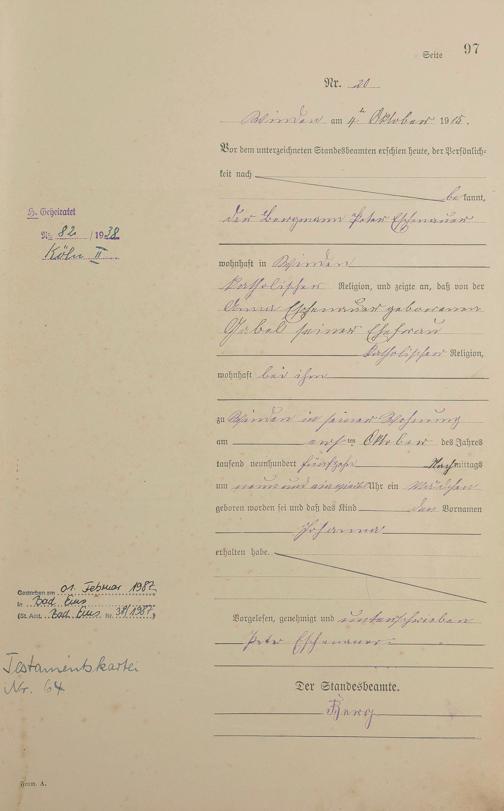 Seite 97
Nr. 20
Winden am 4ten Oktober 1915.
Vor dem unterzeichneten Standesbeamten erschien heute, der Persönlich-
keit nach
bekannt,
der Bergmann Peter Eschenauer
wohnhaft in Winden
katholischer Religion, und zeigte an, daß von der
Anna Eschenauer geborenen
Gabel seiner Ehefrau
katholischer Religion,
wohnhaft bei ihm
zu Winden in seiner Wohnung
am ersten Oktober des Jahres
tausend neunhundert fünfzehn Nachmittags
um neun und Uhr ein Mädchen
geboren worden sei und daß das Kind den Vornamen
Johanna
erhalten habe.
Vorgelesen, genehmigt und unterschrieben
Peter Eschenauer
Der Standesbeamte.
Berg
H. Geheiratet
Nr. 82 / 1938
Köln II
Gestorben am 01. Februar 1987
in Bad Ems
(St. Amt Bad Ems Nr. 38/1987)
Testamentskartei
Nr. 64
Form. A.